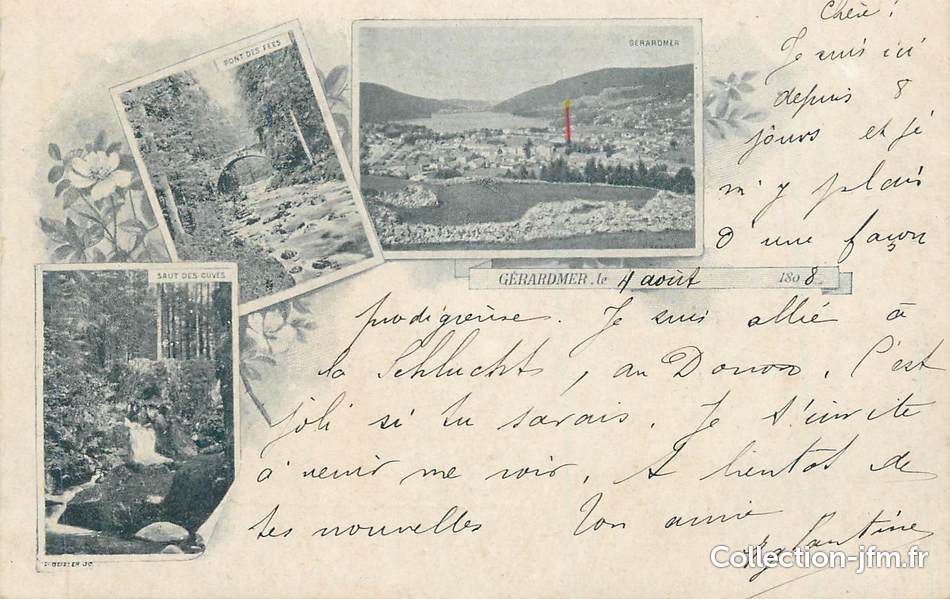 PONT DES FEES
GERARDMER
SAUT DES CUVES
Chère !
Je suis ici
depuis 8
jours et je
m'y plais
d'une façon
GÉRARDMER, le 4 août 1808
prodigieuse. Je suis allié à
la Schlucht, au Donon. C'est
joli si tu savais. Je t'invite
à venir me voir. A bientot de
tes nouvelles Ton amie
Eglantine
Collection-jfm.fr